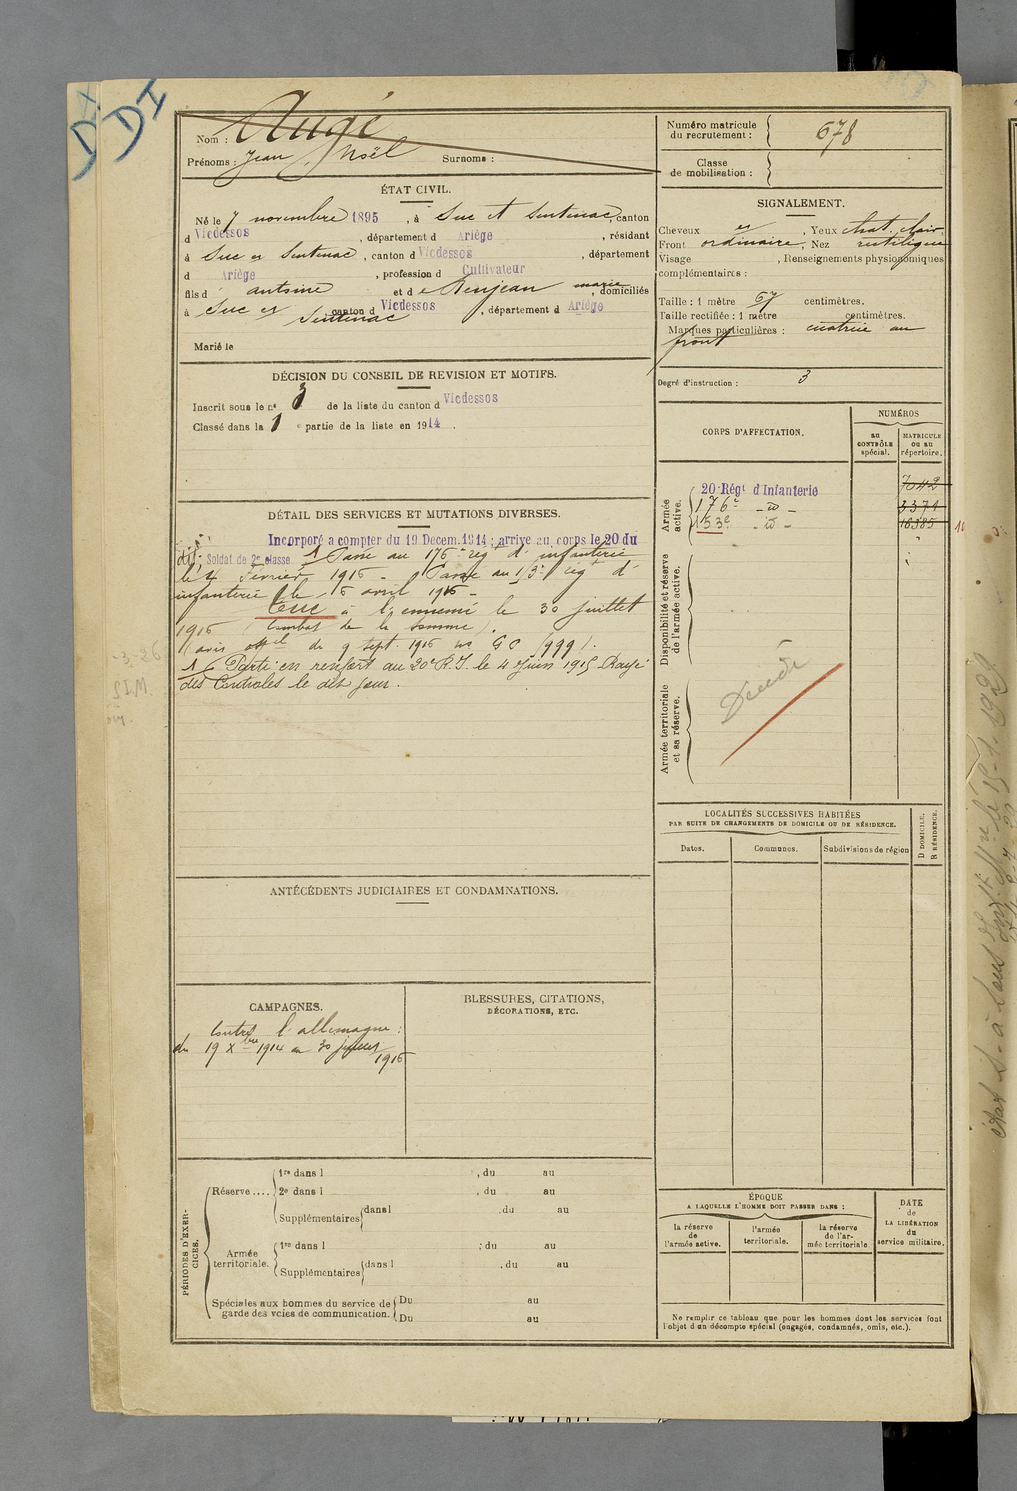 DI
DI
Nom : Augé
Prénoms : Jean, Noël Surnoms :
Numéro matricule du recrutement : 678
Classe de mobilisation :
ÉTAT CIVIL.
Né le 7 novembre 1895, à Suc et Sentenac, canton
d Vicdessos, département d Ariège, résidant
à Suc et Sentenac, canton d Vicdessos, département
d Ariège, profession d Cultivateur
fils d' antoine et de Benjean marie, domiciliés
à Suc et Sentenac canton d Vicdessos, département d Ariège
Marié le
SIGNALEMENT.
Cheveux , Yeux chat. clair
Front ordinaire, Nez rectiligne
Visage , Renseignements physionomiques
complémentaires :
Taille : 1 mètre 67 centimètres.
Taille rectifiée : 1 mètre centimètres.
Marques particulières : cicatrice au
front
Degré d'instruction : 3
DÉCISION DU CONSEIL DE REVISION ET MOTIFS.
Inscrit sous le n° 3 de la liste du canton d Vicdessos
Classé dans la 1e partie de la liste en 1914.
CORPS D'AFFECTATION.
NUMÉROS
au CONTRÔLE spécial.
MATRICULE ou au répertoire.
Armée active.
20 Régt d'Infanterie 7042
176e -d- 3371
153e -d- 16385
Disponibilité et réserve de l'armée active.
Armée territoriale et sa réserve.
Décédé
DÉTAIL DES SERVICES ET MUTATIONS DIVERSES.
Incorporé a compter du 19 Decem. 1914 ; arrivé au corps le 20 du
dit; Soldat de 2e classe. Passé au 176e rég. d'infanterie
le 4 Février 1916 - Passé au 153e rég d'
infanterie le 16 avril 1916 -
Tué à l'ennemi le 30 juillet
1916 (Combat de la Somme).
(avis offel du 9 sept. 1916 no GO 1999).
Parti en renfort au 20e R.I. le 4 Juin 1915 Rayé
des Controles le dit jour.
LOCALITÉS SUCCESSIVES HABITÉES
PAR SUITE DE CHANGEMENTS DE DOMICILE OU DE RÉSIDENCE.
Dates.
Communes.
Subdivisions de région
D DOMICILE. R RÉSIDENCE.
ANTÉCÉDENTS JUDICIAIRES ET CONDAMNATIONS.
CAMPAGNES.
Contre l'allemagne :
du 19 Xbre 1914 au 30 juillet
1916
BLESSURES, CITATIONS,
DÉCORATIONS, ETC.
PÉRIODES D'EXERCICES.
Réserve ....
1re dans l , du au
2e dans l , du au
Supplémentaires dans l , du au
Armée territoriale.
1re dans l ; du au
Supplémentaires dans l , du au
Spéciales aux hommes du service de garde des voies de communication.
Du au
Du au
ÉPOQUE
A LAQUELLE L'HOMME DOIT PASSER DANS :
la réserve de l'armée active.
l'armée territoriale.
la réserve de l'armée territoriale
DATE de LA LIBÉRATION du service militaire.
Ne remplir ce tableau que pour les hommes dont les services font
l'objet d'un décompte spécial (engagés, condamnés, omis, etc.).